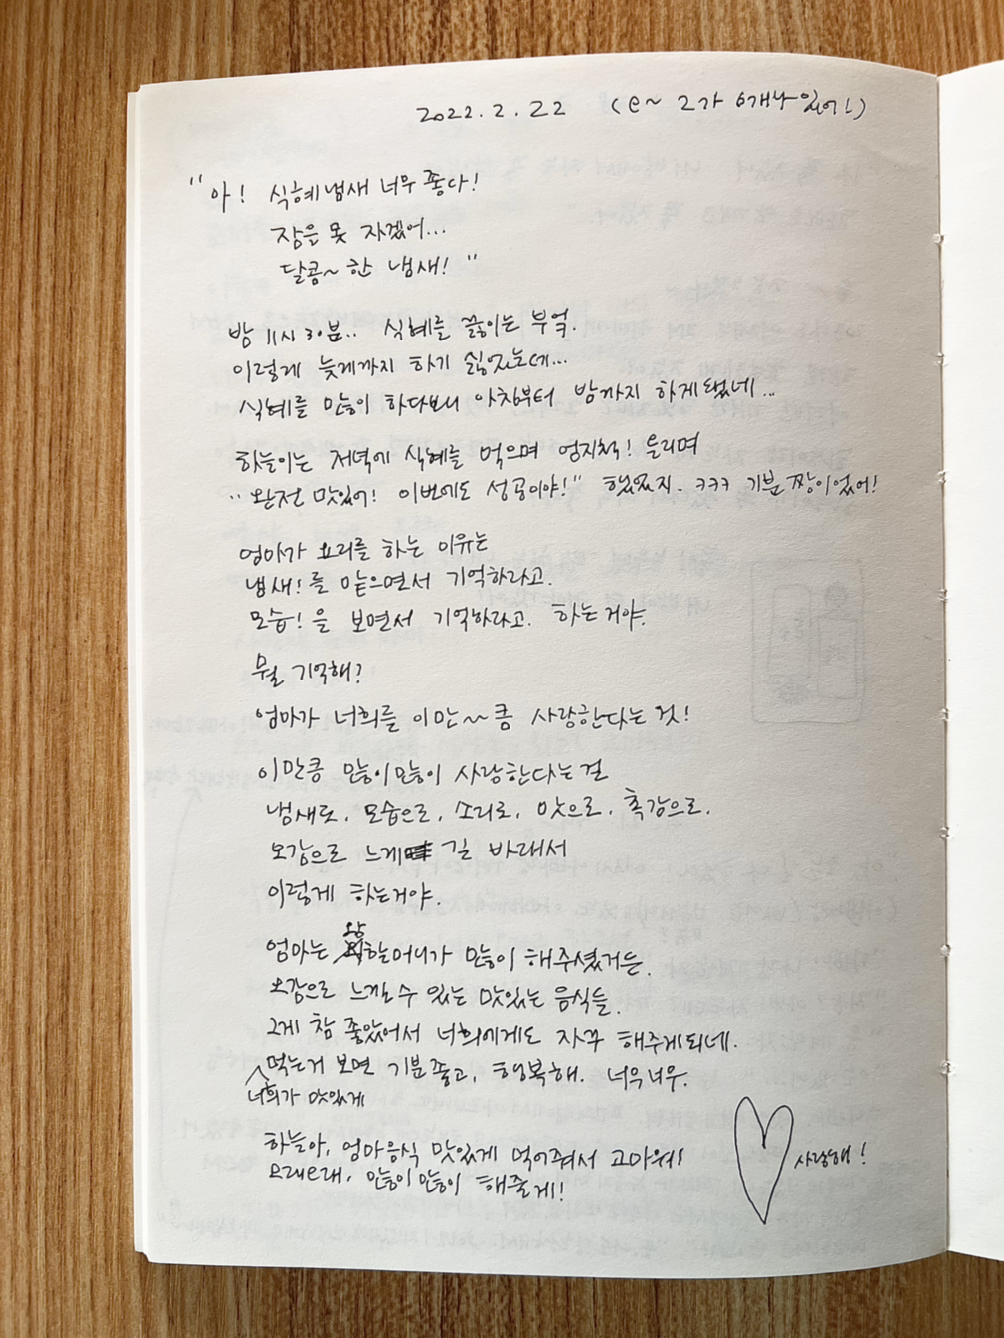 2022. 2. 22 (e~ 2가 6개나 있어!)
"아! 식혜냄새 너무 좋다!
잠을 못 자겠어...
달콤~한 냄새!"
밤 11시 30분.. 식혜를 끓이는 부엌.
이렇게 늦게까지 하기 싫었는데...
식혜를 많이 하다보니 아침부터 밤까지 하게 됐네...
하늘이는 저녁에 식혜를 먹으며 엄지척! 올리며
"완전 맛있어! 이번에도 성공이야!" 했었지. ㅋㅋㅋ 기분 짱이었어!
엄마가 요리를 하는 이유는
냄새!를 맡으면서 기억하라고.
모습!을 보면서 기억하라고. 하는거야.
뭘 기억해?
엄마가 너희를 이만~~큼 사랑한다는 것!
이만큼 많이많이 사랑한다는 걸
냄새로, 모습으로, 소리로, 맛으로, 촉감으로.
오감으로 느께 길 바래서
이렇게 하는거야.
엄마는 왕할머니가 많이 해주셨거든.
오감으로 느낄 수 있는 맛있는 음식들.
그게 참 좋았어서 너희에게도 자꾸 해주게되네.
먹는거 보면 기분좋고, 행복해. 너무너무.
너희가 맛있게
하늘아, 엄마음식 맛있게 먹어줘서 고마워!
오래오래, 많이많이 해줄게!
사랑해!